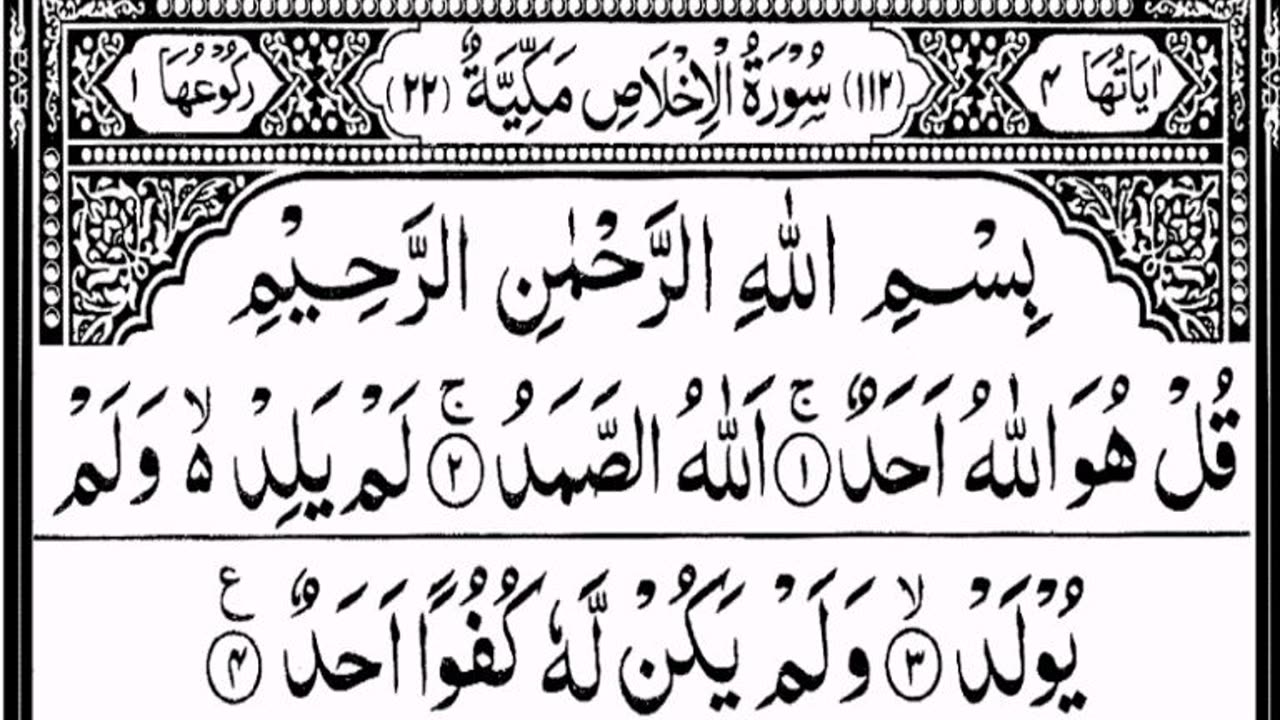 اٰيَاتُهَا ۴ (۱۱۲) سُوْرَةُ الْاِخْلَاصِ مَكِّيَّةٌ (۲۲) رَكُوْعُهَا ۱
بِسْمِ اللّٰهِ الرَّحْمٰنِ الرَّحِيْمِ
قُلْ هُوَ اللّٰهُ اَحَدٌ ۚ ۝۱ اَللّٰهُ الصَّمَدُ ۚ ۝۲ لَمْ يَلِدْ ۙ۵ وَلَمْ
يُوْلَدْ ۙ ۝۳ وَلَمْ يَكُنْ لَّهٗ كُفُوًا اَحَدٌ ۝۴ ع